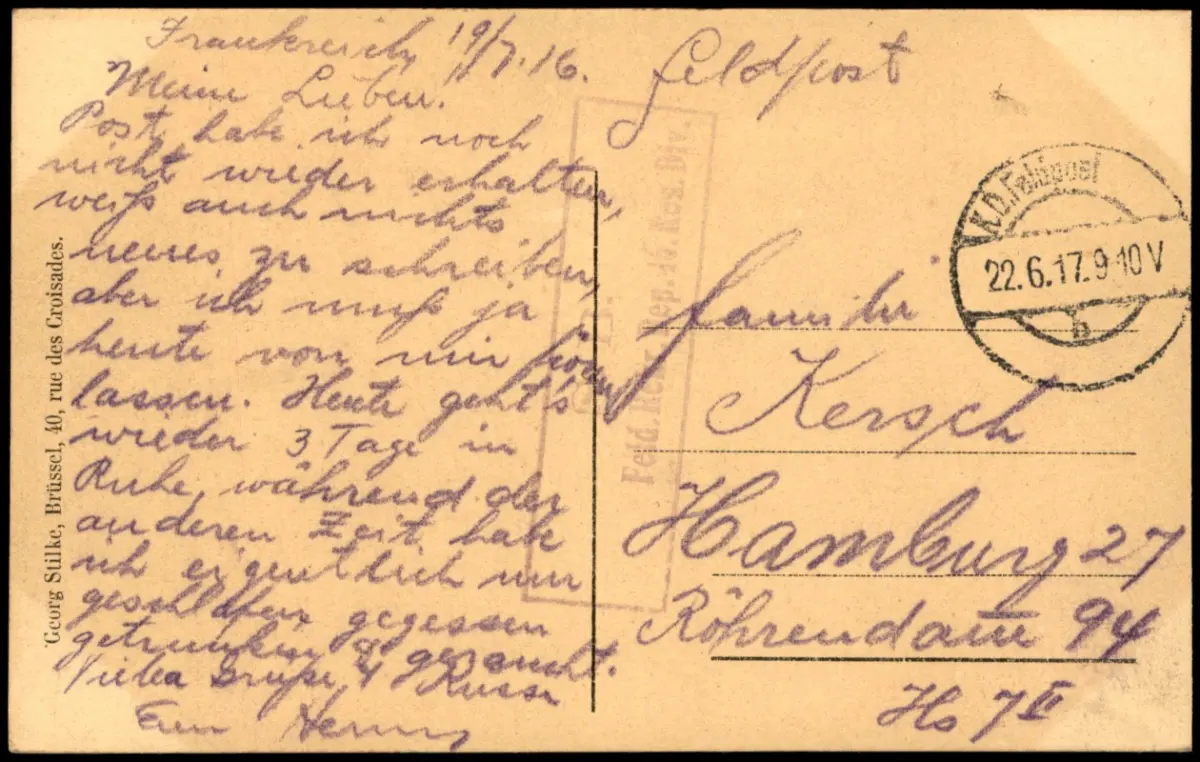 Frankreich, 19/7.16.
Meine Lieben.
Post habe ich noch
nicht wieder erhalten,
weiß auch nichts
neues zu schreiben,
aber ich muß ja
heute von mir hören
lassen. Heute geht's
wieder 3 Tage in
Ruhe, während der
anderen Zeit habe
ich eigentlich nur
geschlafen gegessen
getrunken & geraucht.
Viele Grüße & Küsse
Euer
Feldpost
K.D.Feldpost
22.6.17.9-10V
b
Feld. Rekr. Dep. 16. Res. Div.
Familie
Kersch
Hamburg 27
Röhrendamm 94
Hs 7 II
Georg Stilke, Brüssel, 40, rue des Croisades.